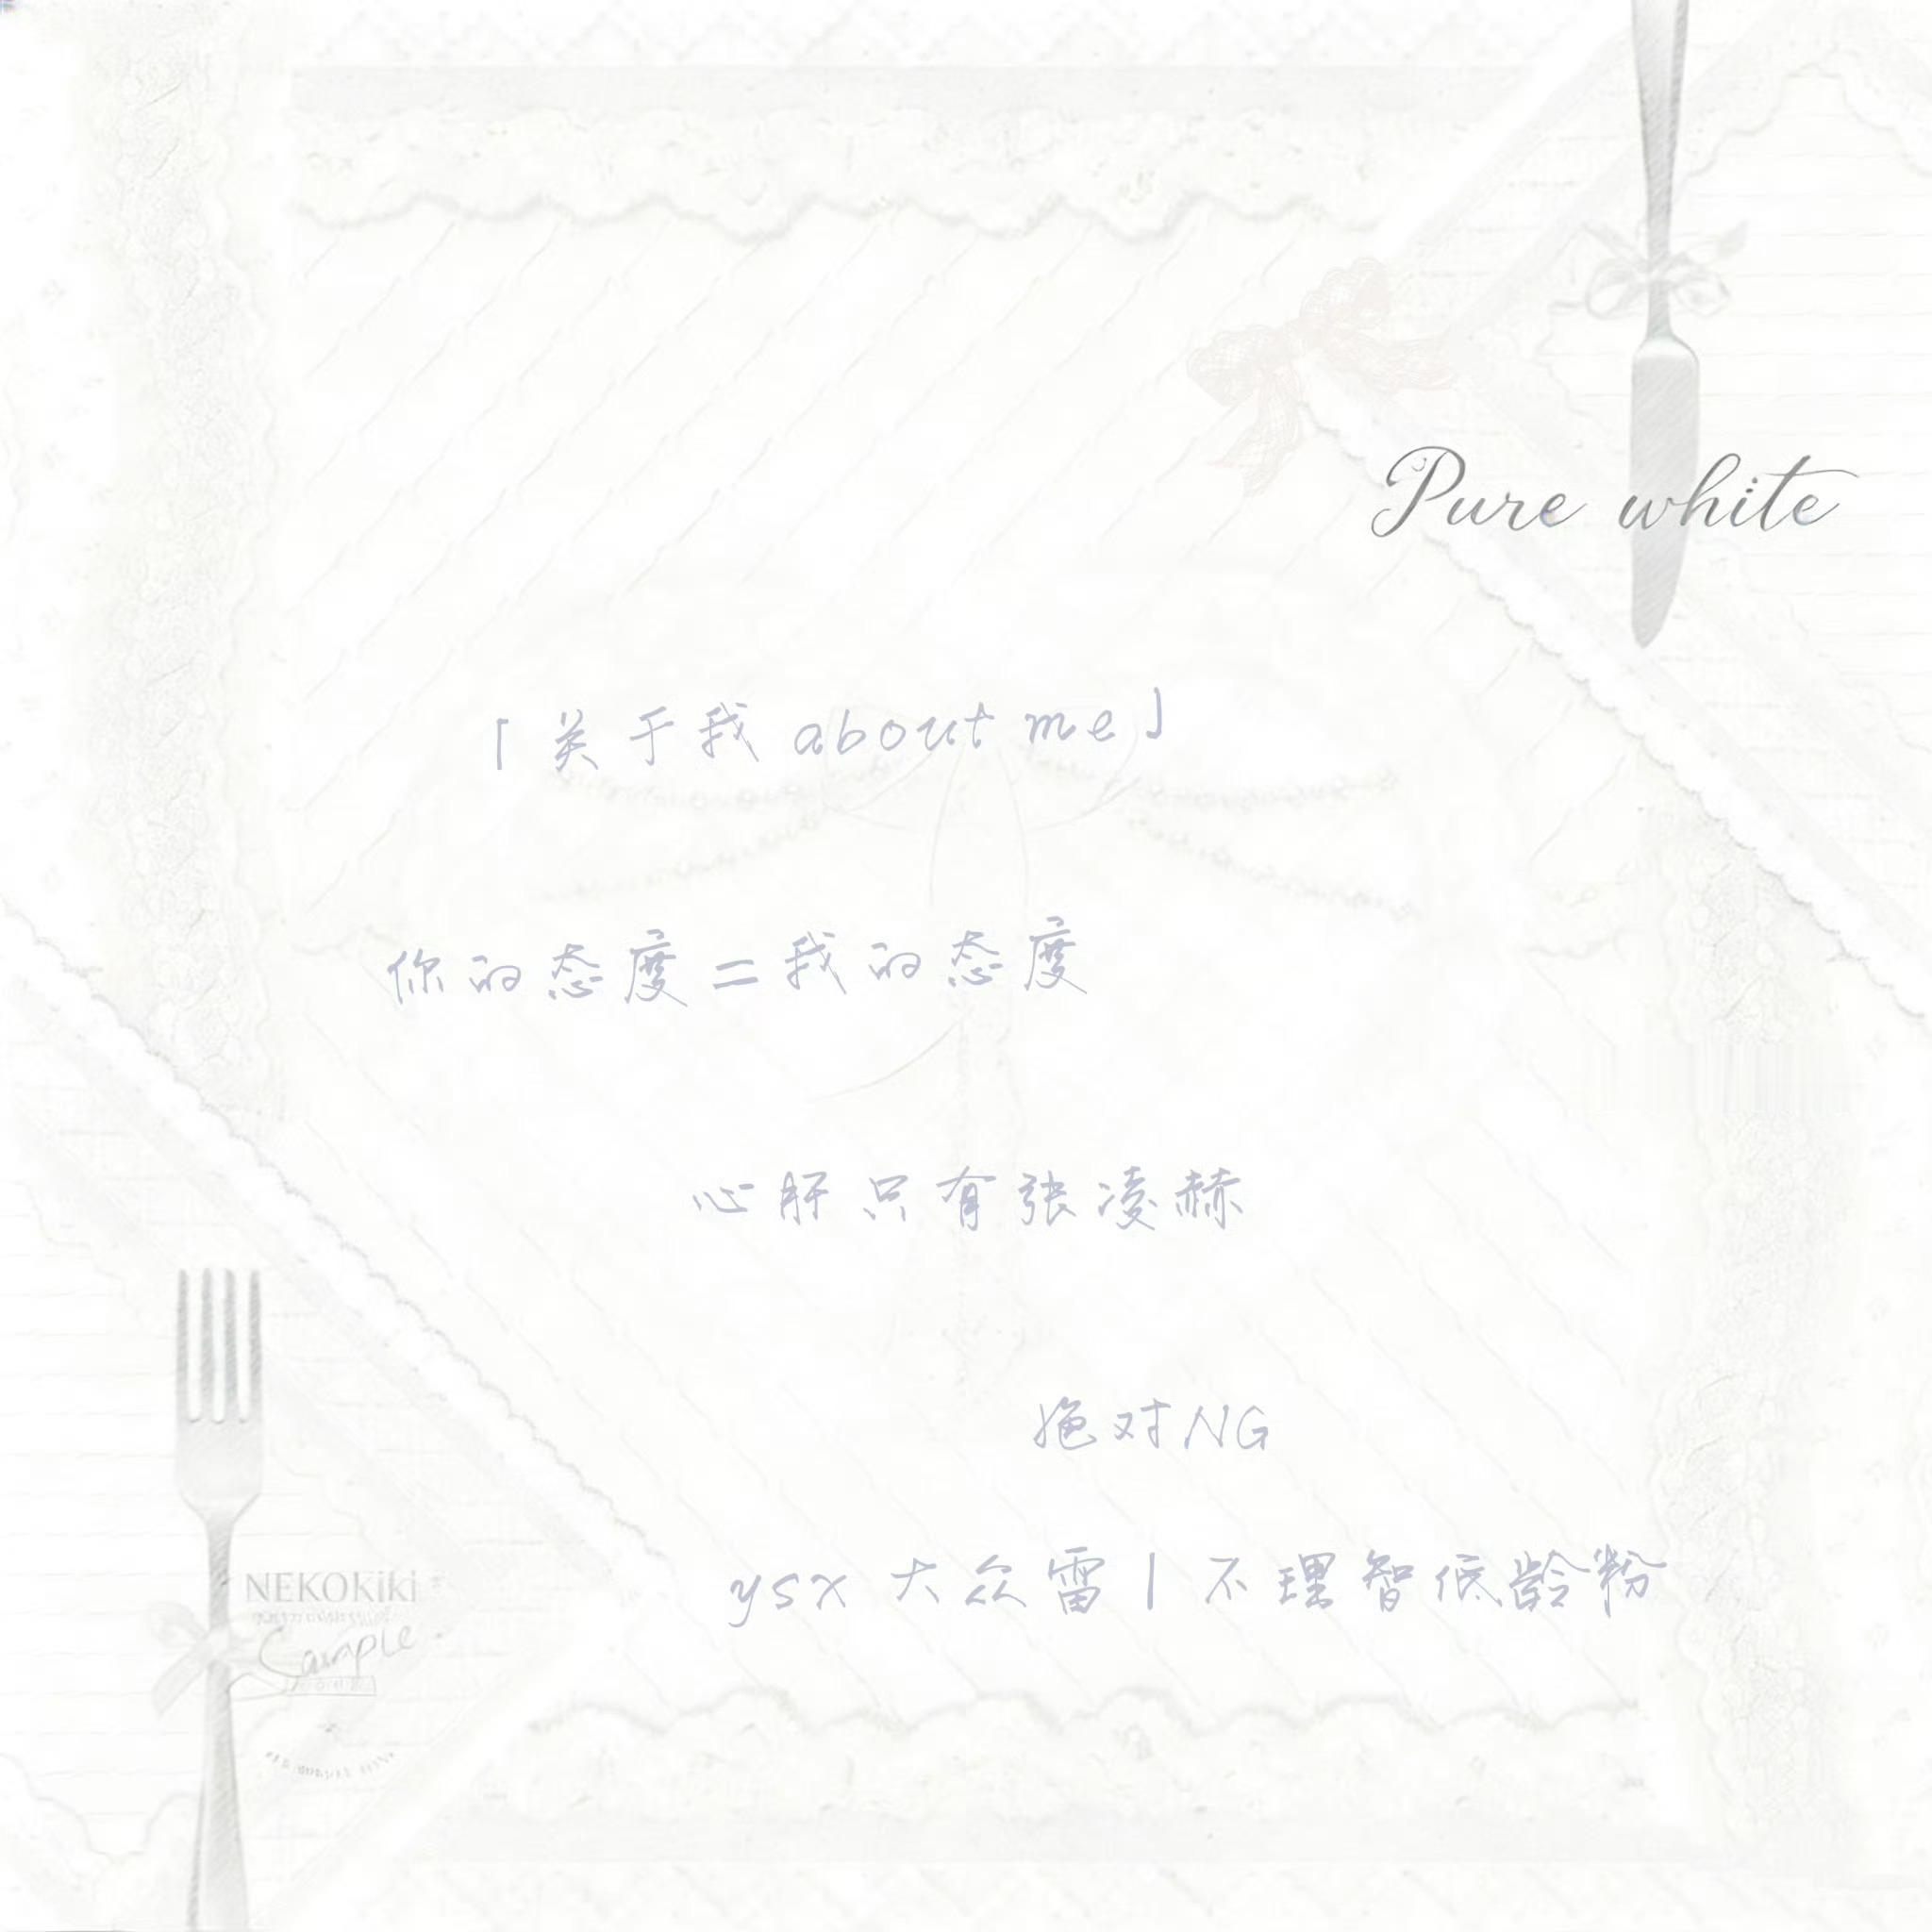 Pure white
「关于我 about me」
你的态度=我的态度
心肝只有张凌赫
绝对NG
ysx 大众雷 | 不理智低龄粉
NEKOKiki
Sample